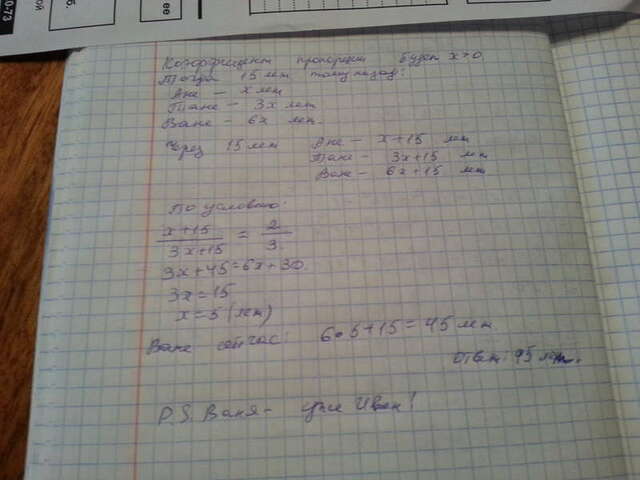 0-73
ой
б.
ее
Коэффициент пропорции будет x>0
Тогда 15 лет тому назад:
Ане – x лет
Тане – 3x лет
Ване – 6x лет.
Через 15 лет Ане – x+15 лет
Тане – 3x+15 лет
Ване – 6x+15 лет
По условию:
x+15 / 3x+15 = 2 / 3
3x+45=6x+30
3x=15
x=5 (лет)
Ване сейчас: 6·5+15=45 лет
Ответ: 45 лет.
P.S. Ваня – уже Иван!